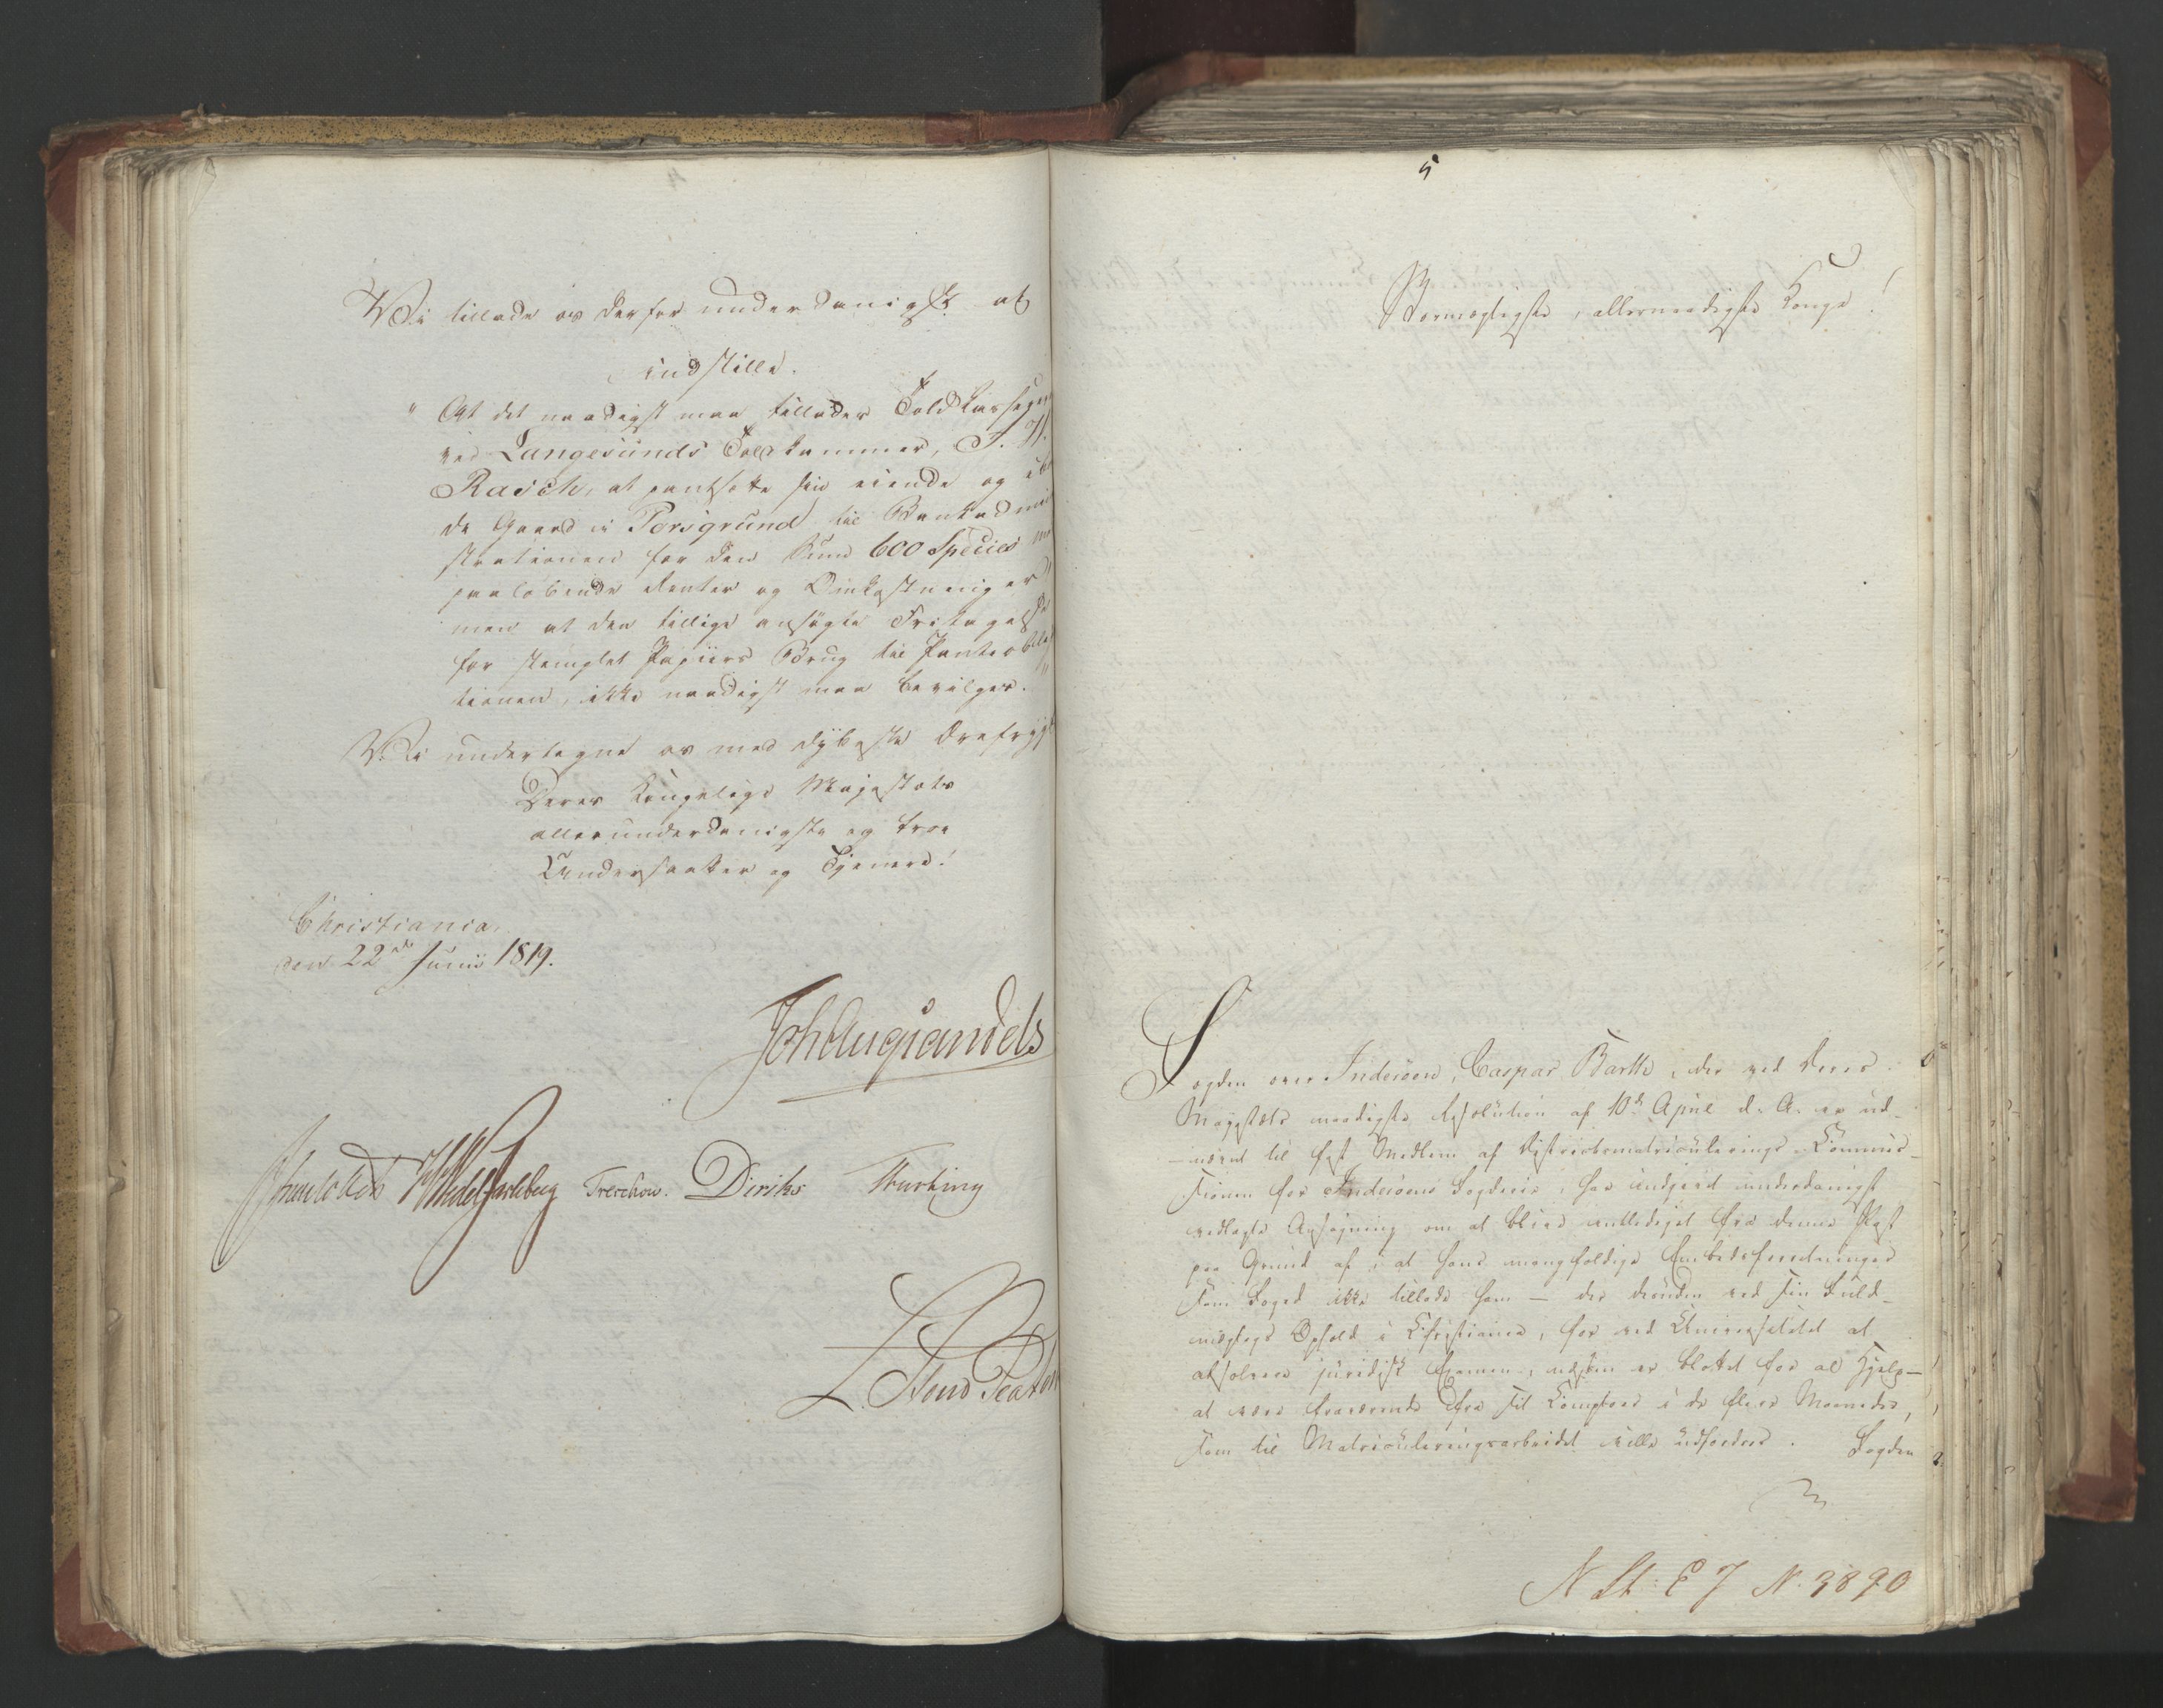 Vi tillade os derfor underdanigst at
indstille.
" At det naadigst maa tillades Toldkasserer
ved Langesunds Toldkammer, J. H.
Rasch, at pantsætte sin eiende og
de Gaard i Porsgrund til Bankadmini
strationen for den Sum 600 Species
paalöbende Renter og Omkostninger
men at den tillige ansögte Fritagelse
for stemplet Papiirs Brug til Panteobliga
tionen, ikke naadigst maa bevilges."
Vi undertegne os med dybeste Ærefrygt
Deres Kongelige Majestæts
allerunderdanigste og troe
Undersaatter og Tjenere!
Christiania,
den 22de Junii 1819.
Joh Aug Sandels
WedelJarlsberg Treschow. Diriks
5
Stormægtigste, allernaadigste Konge!
Fogden over Inderöen, Caspar Barth, der ved Deres
Majestæts naadigste Resolution af 10de April d. A. er ud-
-nævnt til fast Medlem af Districtsmatriculerings-Commis-
sionen for Inderöens Fogderie, har indgivet underdanigst
vedlagte Ansögning om at blive entlediget fra denne Post
paa Grund af, at hans mangfoldige Embedsforretninger
som Foged ikke tillade ham – der desuden ved sin Fuld-
mægtigs Ophold i Christiania, for ved Universitetet at
absolvere juridisk Examen, næsten er blottet for al Hjelp –
at være fraværende fra sit Comptoir i de flere Maaneder,
som til Matriculeringsarbeidet ville udfordres. Fogden
N St: E J N. 3890